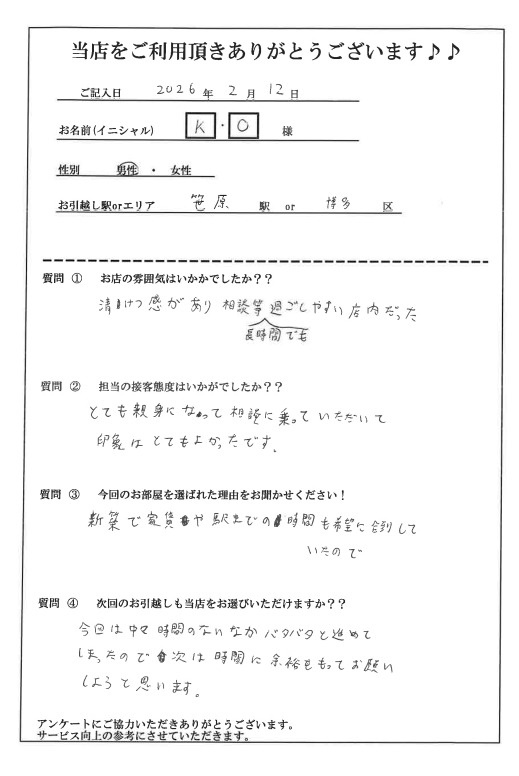 当店をご利用頂きありがとうございます♪♪
ご記入日 2026 年 2 月 12 日
お名前(イニシャル) K ・ O 様
性別 男性 ・ 女性
お引越し駅orエリア 笹原 駅 or 博多 区
質問 ① お店の雰囲気はいかかでしたか??
清けつ感があり相談等過ごしやすい店内だった
長時間でも
質問 ② 担当の接客態度はいかがでしたか??
とても親身になって相談に乗っていただいて
印象はとてもよかったです。
質問 ③ 今回のお部屋を選ばれた理由をお聞かせください!
新築で家賃や駅までの時間も希望に合致して
いたので
質問 ④ 次回のお引越しも当店をお選びいただけますか??
今回は中々時間のないなかバタバタと進めて
しまったので次は時間に余裕をもってお願い
しようと思います。
アンケートにご協力いただきありがとうございます。
サービス向上の参考にさせていただきます。